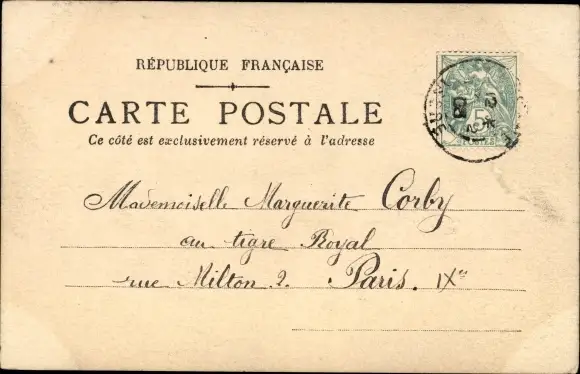 RÉPUBLIQUE FRANÇAISE
CARTE POSTALE
Ce côté est exclusivement réservé à l'adresse
5
POSTES
Mademoiselle Marguerite Corby
au tigre Royal
rue Milton. 2. Paris. IXe